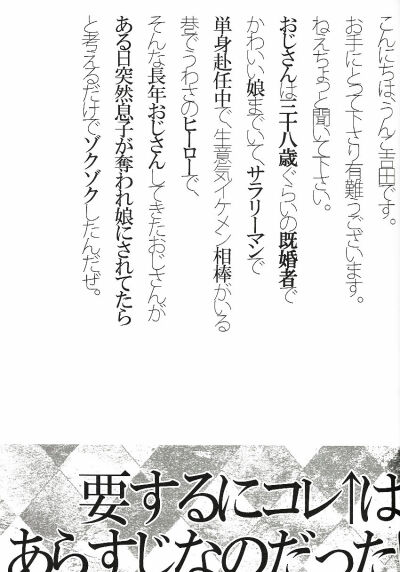 こんにちは、うんと吉田です。
お手にとって下さり有難うございます。
ねえちょっと聞いて下さい。
おじさんは三十八歳ぐらいの既婚者で
かわいい娘までいて、サラリーマンで
単身赴任中で、生意気イケメン相棒がいる
巷でうわさのヒーローで、
そんな長年おじさんしてきたおじさんが
ある日突然息子が奪われ娘にされてたら
と考えるだけでゾクゾクしたんだぜ。
要するにコレ↑は
あらすじなのだった!